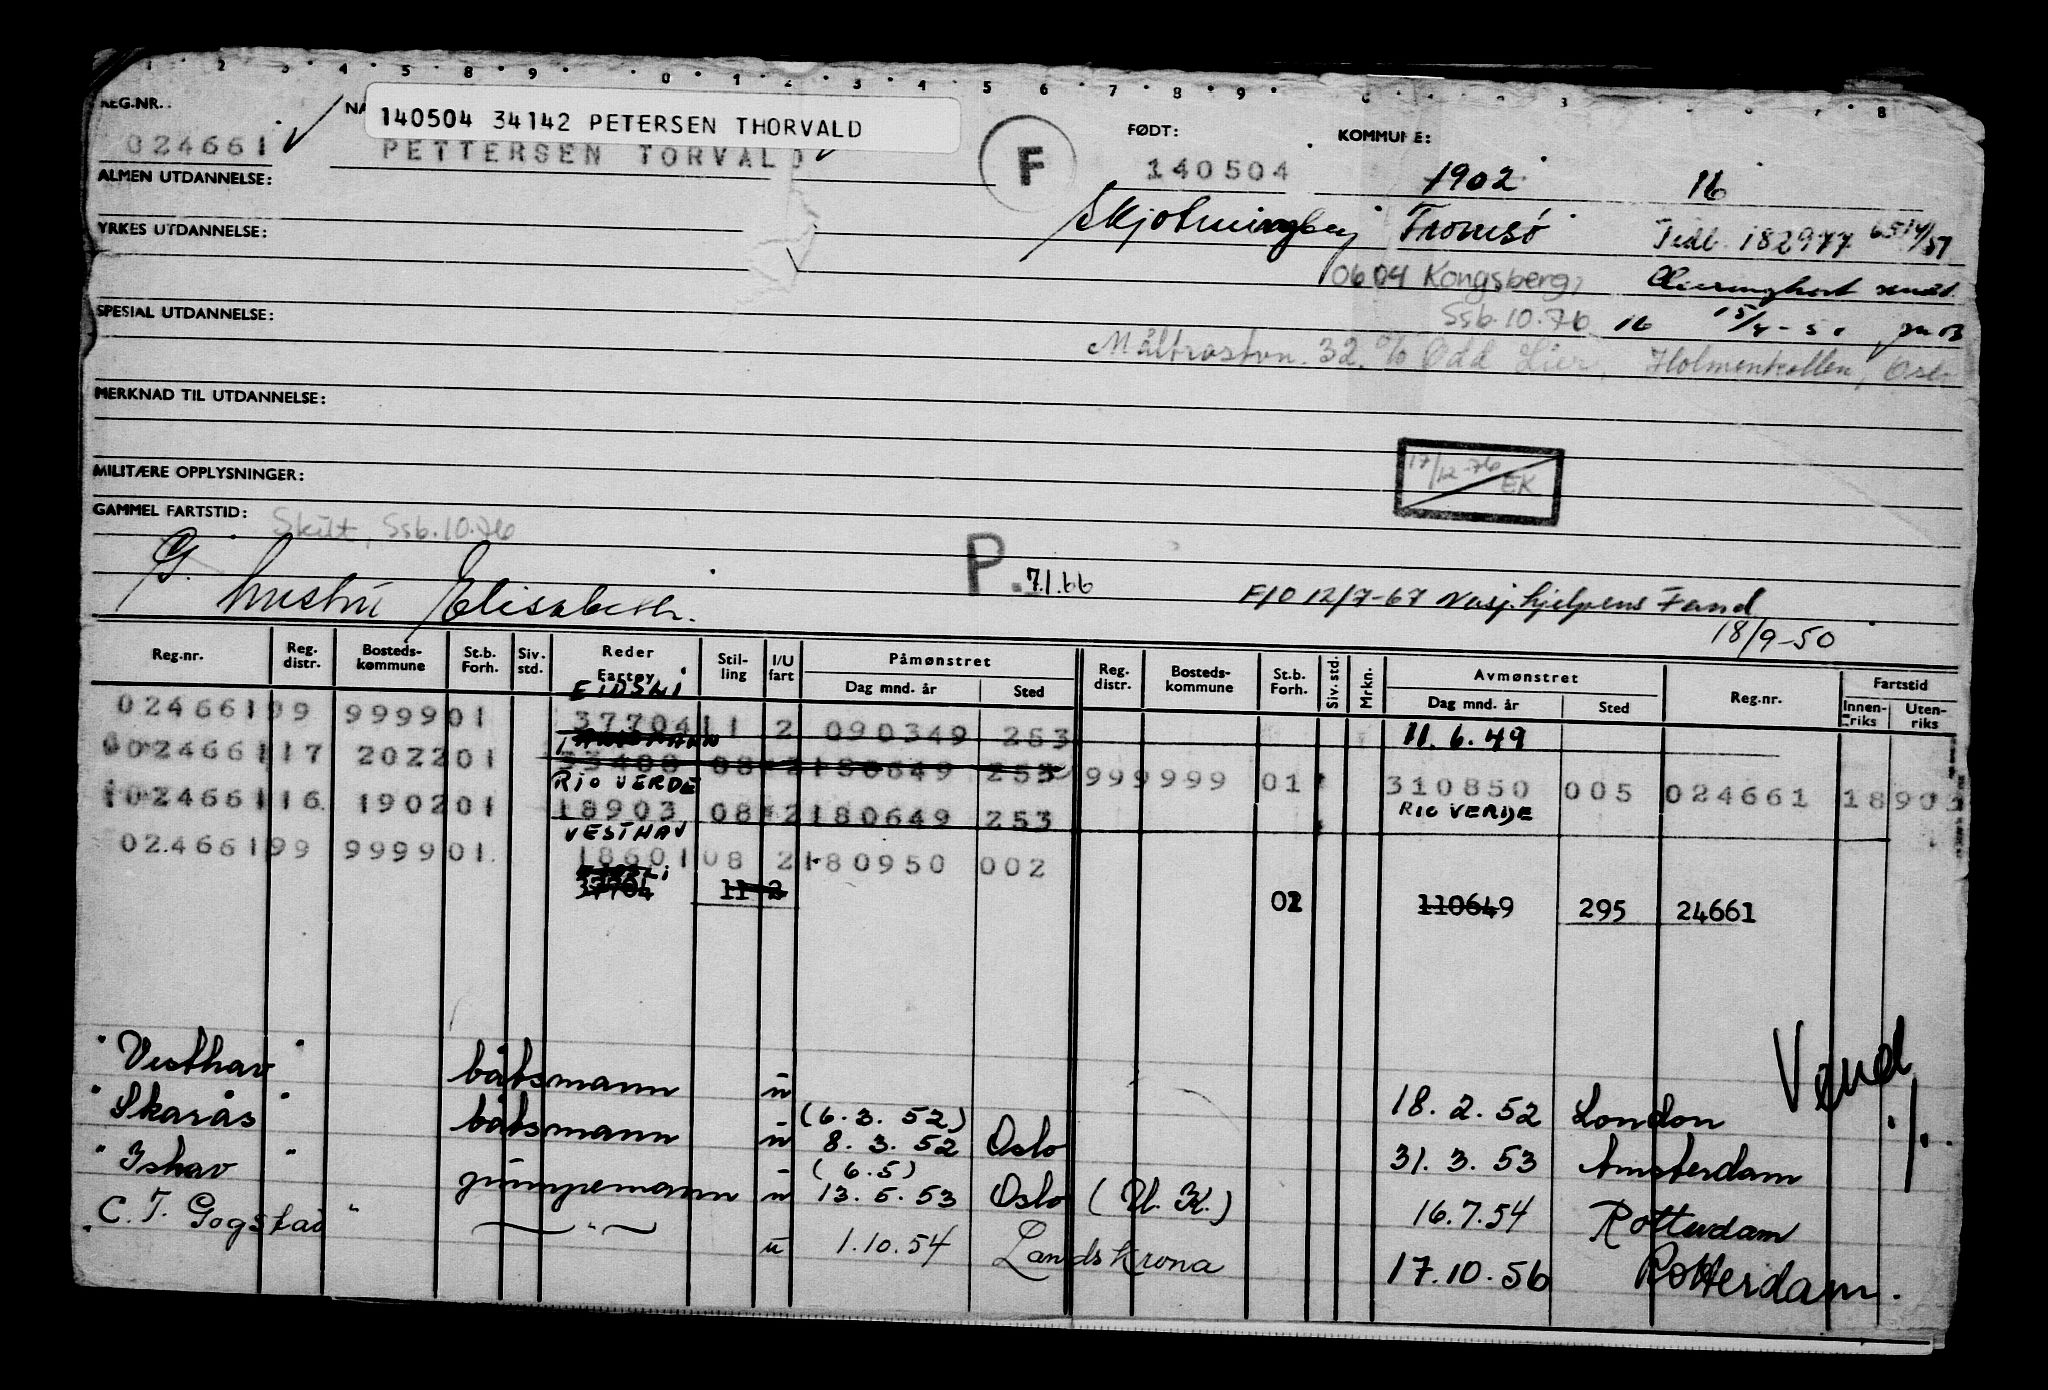 1 2 3 4 5 8 9 0 1 2 3 4 5 6 7 8 9 3 8
REG.NR.: NA FØDT: KOMMUNE:
140504 34142 PETERSEN THORVALD
024661 PETTERSEN TORVALD F 140504 1902 16
ALMEN UTDANNELSE:
Tromsø 182977
YRKES UTDANNELSE:
0604 Kongsberg,
SPESIAL UTDANNELSE: Ssb.10.76 16
32 % Odd Lier, Holmenkollen, Oslo
MERKNAD TIL UTDANNELSE:
17/12-76 EK
MILITÆRE OPPLYSNINGER:
GAMMEL FARTSTID: Skut, Ssb.10.76
G. hustru Elisabeth. P. 7.1.66 F/O 12/7-67 Nasj.hjelpens Fond
18/9-50
Reg.nr. Reg. distr. Bosteds- kommune St.b. Forh. Siv. std. Reder Fartøy Stil- ling I/U fart Påmønstret Dag mnd. år Sted Reg. distr. Bosteds- kommune St.b. Forh. Siv. std. Mrkn. Avmønstret Dag mnd. år Sted Reg.nr. Fartstid Innen- riks Uten- riks
EIDSLI
024661 99 9999 01 37704 11 2 090349 253 11.6.49
024661 17 2022 01 33408 08 2 180649 253 99 9999 01 310850 005 024661 18
RIO VERDE RIO VERDE
024661 16 1902 01 18903 08 2 180649 253
VESTHAV
024661 99 9999 01 18601 08 2 180950 002
37704 11 2 02 110649 295 24661
"Vesthav" båtsmann u 18.2.52 London Vend
(6.3.52)
"Skarås" båtsmann u 8.3.52 Oslo 31.3.53 Amsterdam
(6.5)
"Ishav" pumpemann u 13.5.53 Oslo (U.K.) 16.7.54 Rotterdam
"C.T. Gogstad" — " — u 1.10.54 Landskrona 17.10.56 Rotterdam.